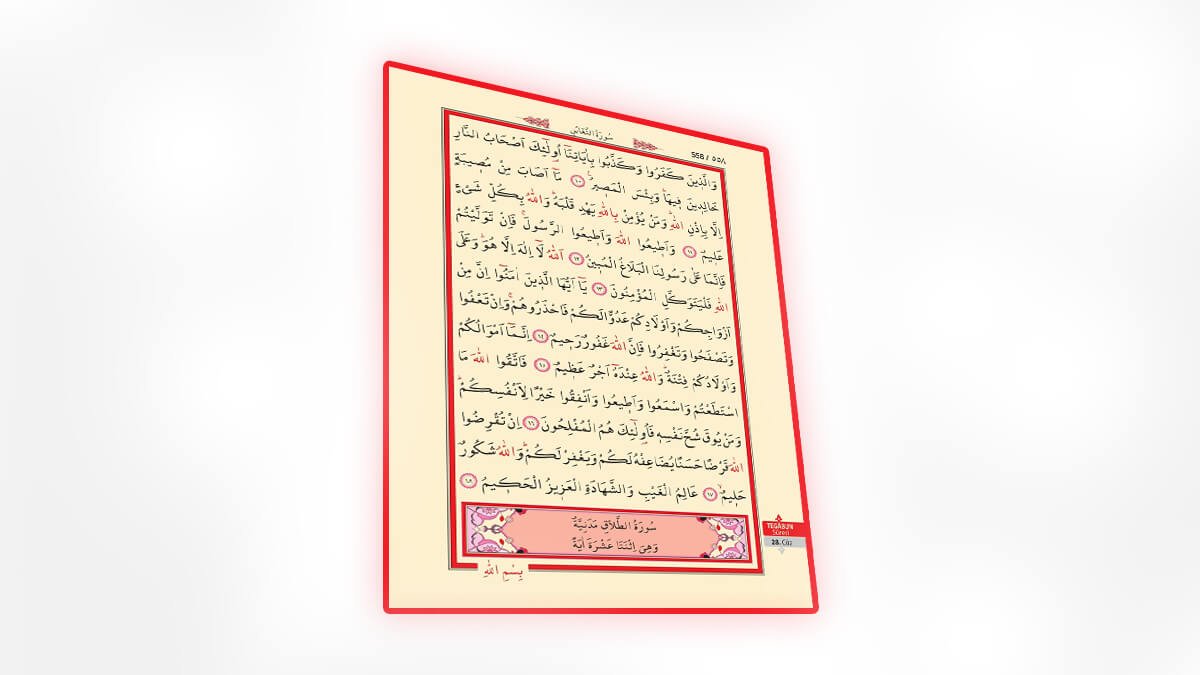 سُورَةُ التَّغَابُنِ
558 / ٥٥٨
وَالَّذٖينَ كَفَرُوا وَكَذَّبُوا بِاٰيَاتِنَٓا اُو۬لٰٓئِكَ اَصْحَابُ النَّارِ
خَالِدٖينَ فٖيهَاؕ وَبِئْسَ الْمَصٖيرُ ﴿١٠﴾ مَٓا اَصَابَ مِنْ مُصٖيبَةٍ
اِلَّا بِاِذْنِ اللّٰهِؕ وَمَنْ يُؤْمِنْ بِاللّٰهِ يَهْدِ قَلْبَهُؕ وَاللّٰهُ بِكُلِّ شَیْءٍ
عَلٖيمٌ ﴿١١﴾ وَاَطٖيعُوا اللّٰهَ وَاَطٖيعُوا الرَّسُولَۚ فَاِنْ تَوَلَّيْتُمْ
فَاِنَّمَا عَلٰى رَسُولِنَا الْبَلَاغُ الْمُبٖينُ ﴿١٢﴾ اَللّٰهُ لَٓا اِلٰهَ اِلَّا هُوَؕ وَعَلَى
اللّٰهِ فَلْيَتَوَكَّلِ الْمُؤْمِنُونَ ﴿١٣﴾ يَٓا اَيُّهَا الَّذٖينَ اٰمَنُٓوا اِنَّ مِنْ
اَزْوَاجِكُمْ وَاَوْلَادِكُمْ عَدُوًّا لَكُمْ فَاحْذَرُوهُمْۚ وَاِنْ تَعْفُوا
وَتَصْفَحُوا وَتَغْفِرُوا فَاِنَّ اللّٰهَ غَفُورٌ رَحٖيمٌ ﴿١٤﴾ اِنَّمَٓا اَمْوَالُكُمْ
وَاَوْلَادُكُمْ فِتْنَةٌؕ وَاللّٰهُ عِنْدَهُٓ اَجْرٌ عَظٖيمٌ ﴿١٥﴾ فَاتَّقُوا اللّٰهَ مَا
اسْتَطَعْتُمْ وَاسْمَعُوا وَاَطٖيعُوا وَاَنْفِقُوا خَيْرًا لِاَنْفُسِكُمْؕ
وَمَنْ يُوقَ شُحَّ نَفْسِهٖ فَاُو۬لٰٓئِكَ هُمُ الْمُفْلِحُونَ ﴿١٦﴾ اِنْ تُقْرِضُوا
اللّٰهَ قَرْضًا حَسَنًا يُضَاعِفْهُ لَكُمْ وَيَغْفِرْ لَكُمْؕ وَاللّٰهُ شَكُورٌ
حَلٖيمٌۙ ﴿١٧﴾ عَالِمُ الْغَيْبِ وَالشَّهَادَةِ الْعَزٖيزُ الْحَكٖيمُ ﴿١٨﴾
سُورَةُ الطَّلَاقِ مَدَنِيَّةٌ
وَهِیَ اِثْنَتَا عَشْرَةَ اٰيَةً
بِسْمِ اللّٰهِ
TEGÂBUN
Sûresi
28. Cüz